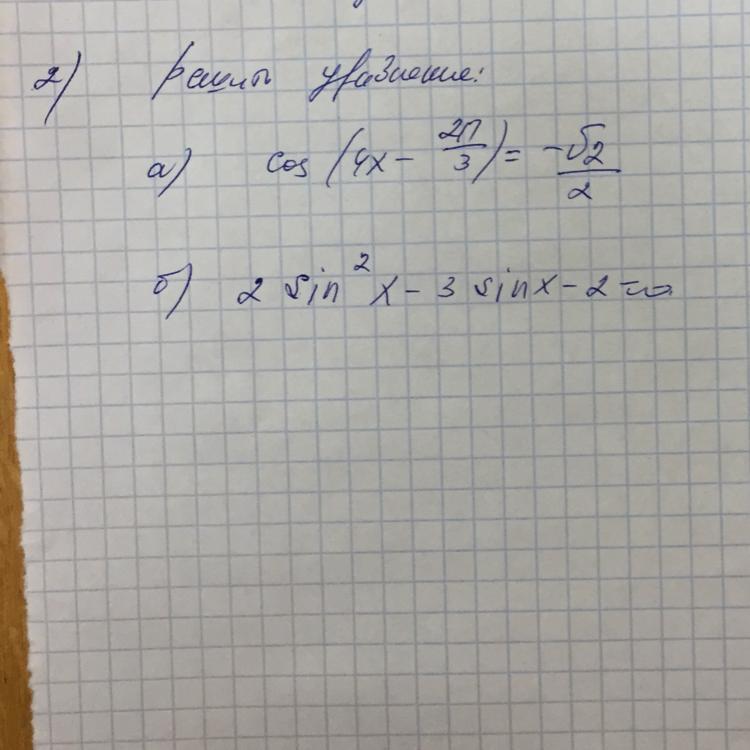 2) Решить уравнение:
а) cos (4x - 2π/3) = -√2/2
б) 2 sin² x - 3 sin x - 2 = 0